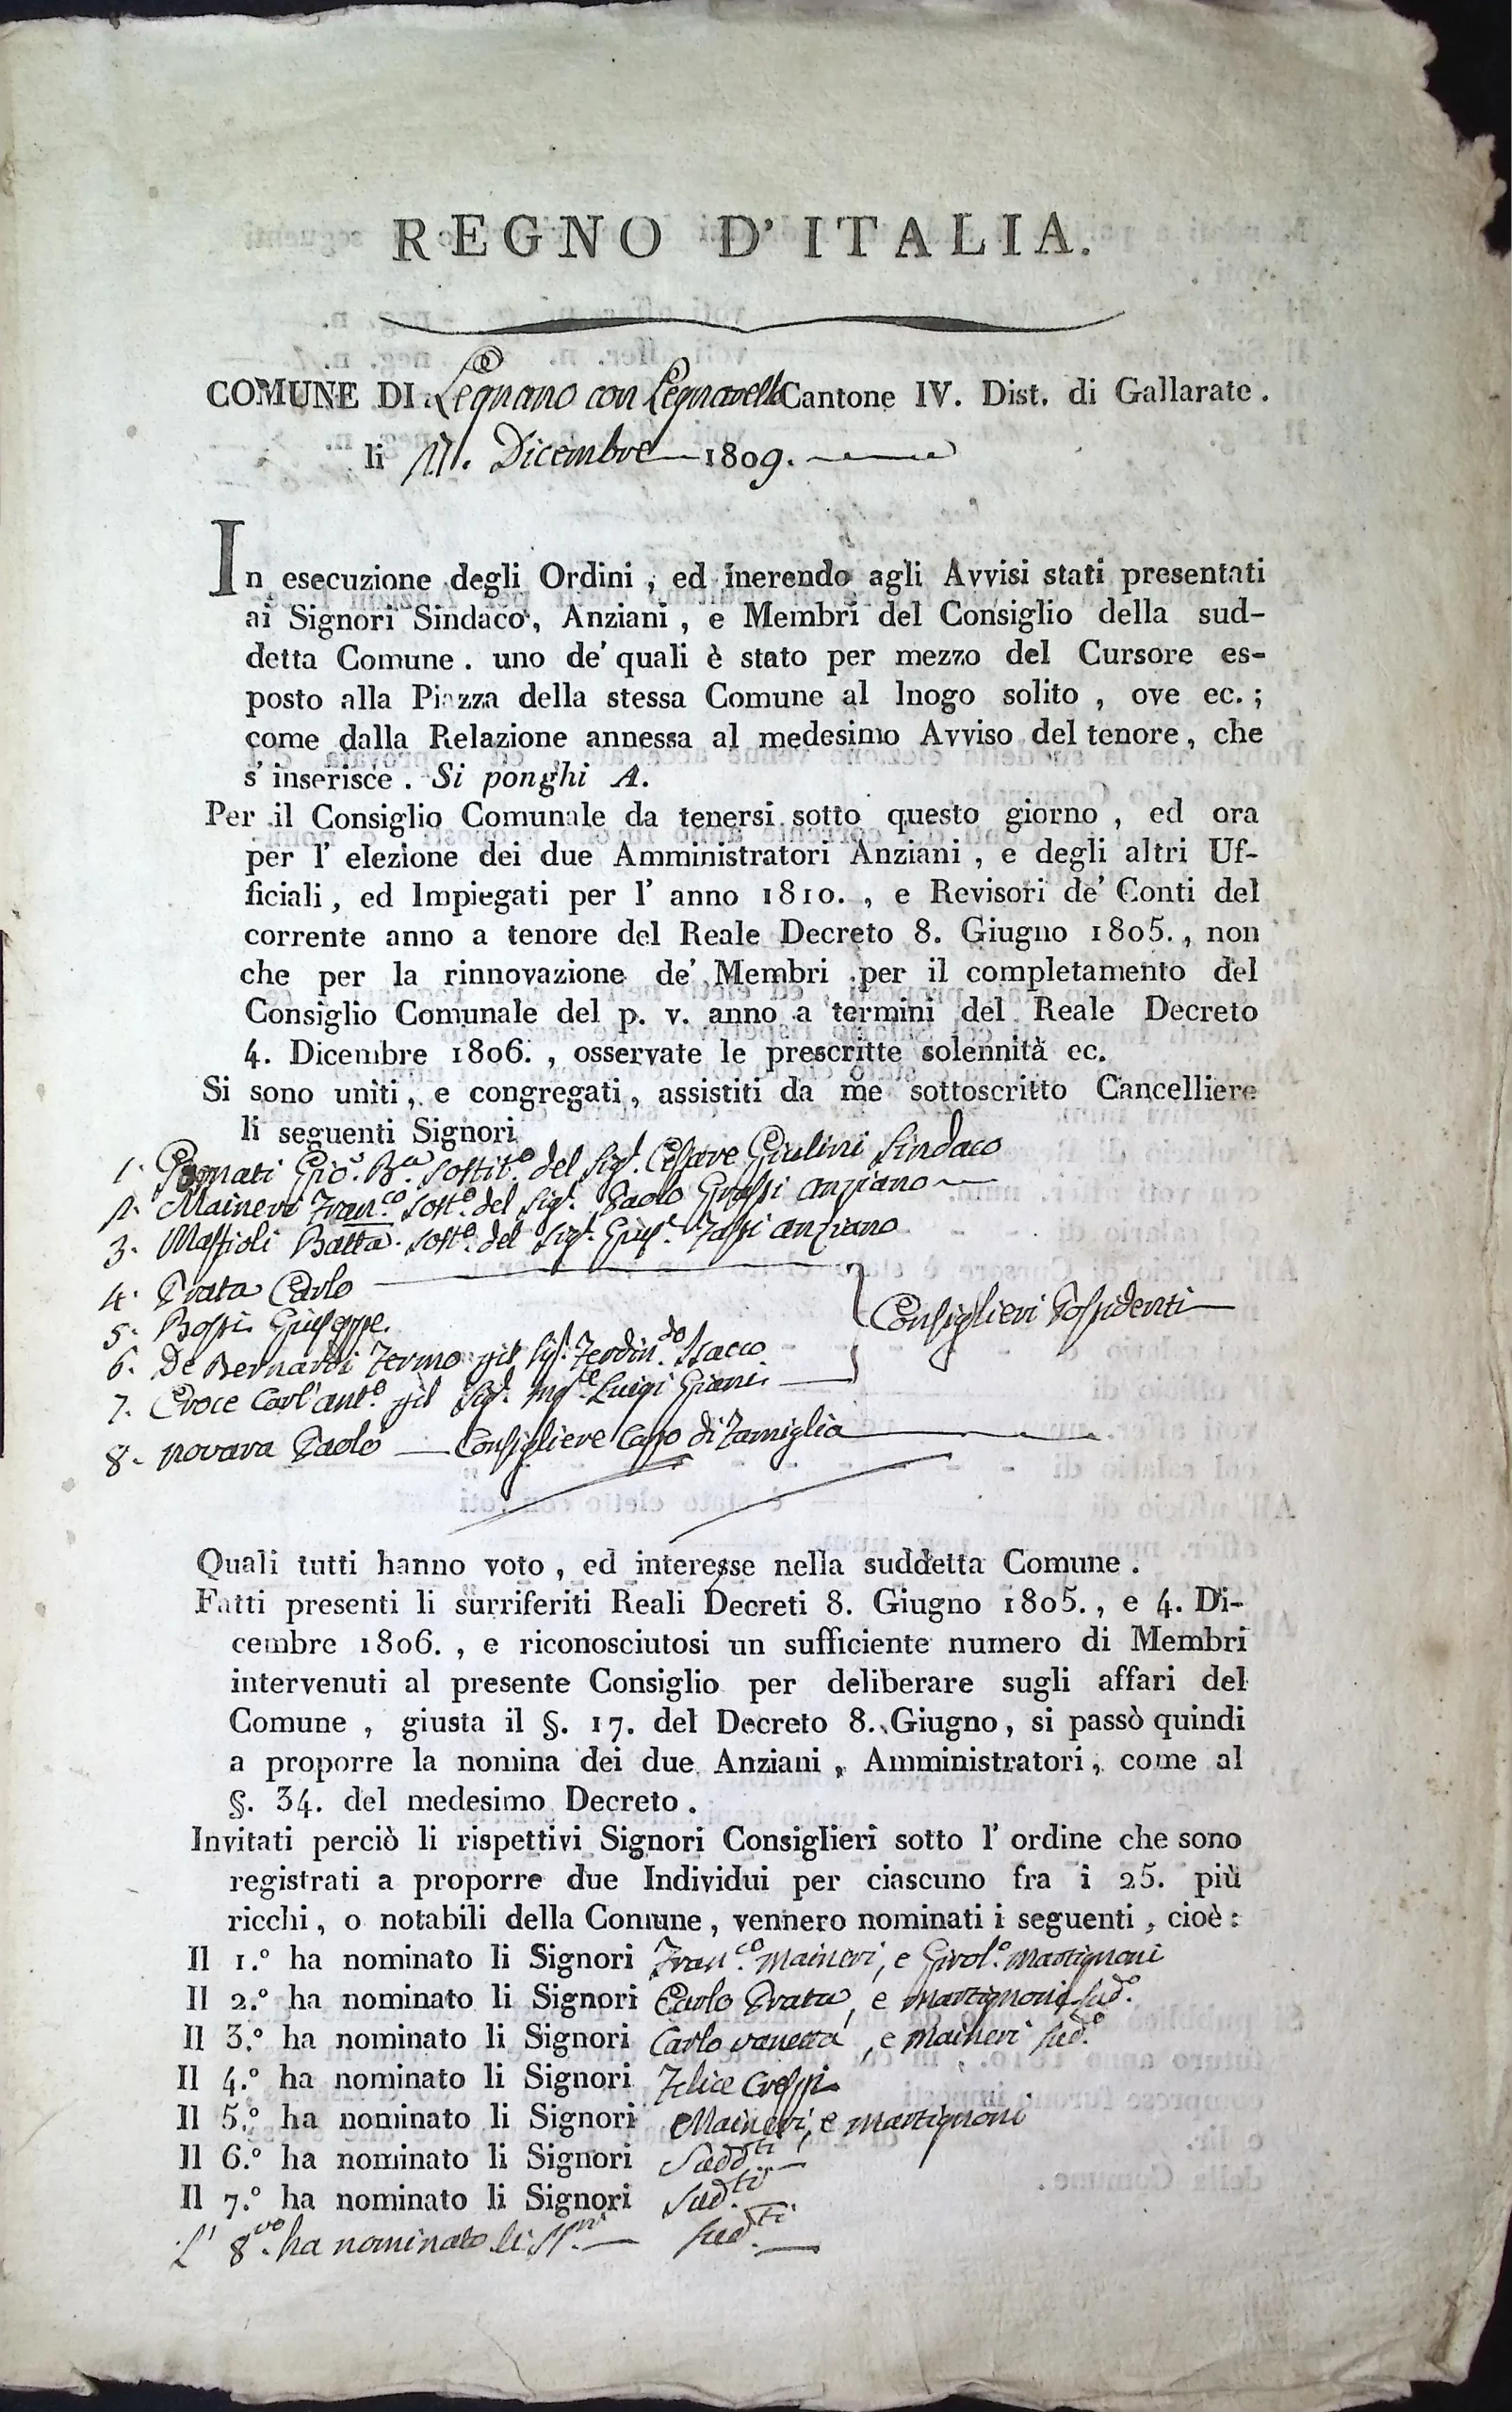 REGNO D'ITALIA.
COMUNE DI Legnano con Legnarello Cantone IV. Dist. di Gallarate.
li Dicembre 1809.
In esecuzione degli Ordini, ed inerendo agli Avvisi stati presentati
ai Signori Sindaco, Anziani, e Membri del Consiglio della sud-
detta Comune. uno de' quali è stato per mezzo del Cursore es-
posto alla Piazza della stessa Comune al luogo solito, ove ec.;
come dalla Relazione annessa al medesimo Avviso del tenore, che
s' inserisce. Si ponghi A.
Per il Consiglio Comunale da tenersi sotto questo giorno, ed ora
per l' elezione dei due Amministratori Anziani, e degli altri Uf-
ficiali, ed Impiegati per l' anno 1810., e Revisori de' Conti del
corrente anno a tenore del Reale Decreto 8. Giugno 1805., non
che per la rinnovazione de' Membri per il completamento del
Consiglio Comunale del p. v. anno a termini del Reale Decreto
4. Dicembre 1806., osservate le prescritte solennità ec.
Si sono uniti, e congregati, assistiti da me sottoscritto Cancelliere
li seguenti Signori
1. Gio. Bta. sostit.o del Sig.r Cesare Giulini Sindaco
2. Maineri Fran.co sost.o del Sig.r Paolo Anziano
3. Massioli Batta. sost.o del Sig.r Gius.e anziano
4. Prata Carlo
5. Bossi Giuseppe.
6. De Bernardi Fermo pil Sig.r Ferdin.do Isacco
7. Croce Carl'ant.o pil Sig.r Ing.e Luigi Giani.
Consiglieri Possidenti
8. Novara Paolo Consigliere Capo di Famiglia
Quali tutti hanno voto, ed interesse nella suddetta Comune.
Fatti presenti li surriferiti Reali Decreti 8. Giugno 1805., e 4. Di-
cembre 1806., e riconosciutosi un sufficiente numero di Membri
intervenuti al presente Consiglio per deliberare sugli affari del
Comune, giusta il §. 17. del Decreto 8. Giugno, si passò quindi
a proporre la nomina dei due Anziani, Amministratori, come al
§. 34. del medesimo Decreto.
Invitati perciò li rispettivi Signori Consiglieri sotto l' ordine che sono
registrati a proporre due Individui per ciascuno fra i 25. più
ricchi, o notabili della Comune, vennero nominati i seguenti, cioè:
Il 1.° ha nominato li Signori Fran.co Maineri, e Girol.o Martignoni
Il 2.° ha nominato li Signori Carlo Prata, e Martignoni sud.o
Il 3.° ha nominato li Signori Carlo Vanetta, e Maineri sud.o
Il 4.° ha nominato li Signori Felice Crespi
Il 5.° ha nominato li Signori Maineri, e Martignoni
Il 6.° ha nominato li Signori Sudd.ti
Il 7.° ha nominato li Signori Sud.ti
L' 8.vo ha nominato li SS.ri Sud.ti